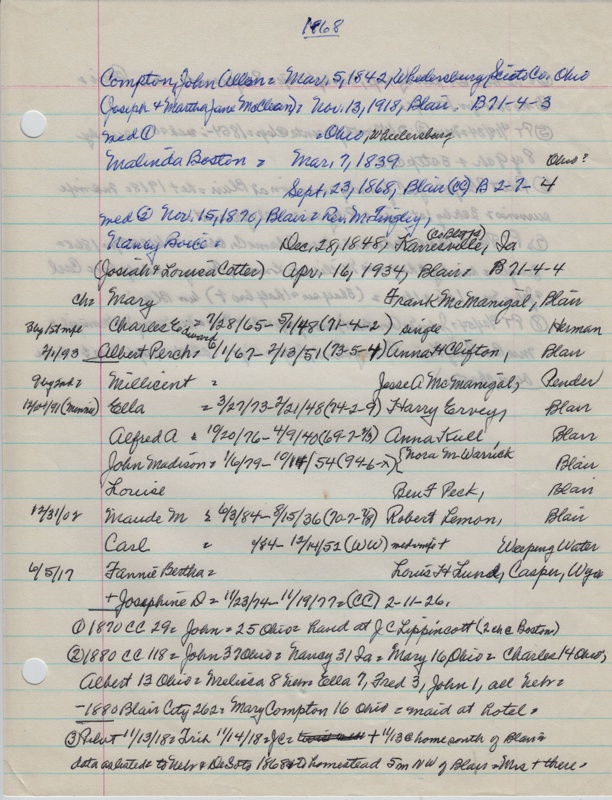 1868
Compton, John Allen = Mar. 5, 1842, Wheelersburg, Scioto Co. Ohio
(Joseph & Martha Jane McClean) = Nov. 13, 1918, Blair. B 71-4-3
med ① = Ohio, Wheelersburg
Malinda Boston = Mar. 7, 1839 Ohio?
Sept. 23, 1868, Blair (CC) B 2-7-4
med ② Nov. 15, 1870, Blair = Rev. McTingley,
Nancy = Dec. 28, 1848, Karresville, (Co Bluffs) Ia
(Josiah & Louisa Cotter) Apr. 16, 1934, Blair = B 71-4-4
Ch = Mary Frank McManigal, Blair
3 by 1st mge Charles Edward = 7/28/65 - 5/1/48 (71-4-2) single Herman
2/1/93 Albert Perch = 1/1/67 - 2/13/51 (73-5-4) Anna H Clifton, Blair
9 by 2nd = Millicent = Jesse A McManigal, Pender
12/24/91 (Minnie) Ella = 3/27/73 - 2/21/48 (74-2-9) Harry Ervey, Blair
Alfred A = 10/20/76 - 4/9/40 (69-7-7/8) Anna Kull, Blair
John Madison = 1/6/79 - 10/14/54 (94-6-x) {Nora M Warrick Blair
Louise Ben F Peck, Blair
12/31/02 Maude M = 6/3/84 - 8/15/36 (70-7-7/8) Robert Lemon, Blair
Carl = /84 - 12/14/52 (WW) Weeping Water
6/5/17 Fannie Bertha = Louis H Lund, Casper, Wyo
+ Josephine D = 11/23/74 - 11/19/77 = (CC) 2-11-26.
① 1870 CC 29 = John = 25 Ohio = hand at J C Lippincott (2 ch c Boston)
② 1880 CC 118 = John 37 Ohio = Nancy 31 Ia = Mary 16 Ohio = Charles 14 Ohio,
Albert 13 Ohio = Melissa 8 Nebr = Ella 7, Fred 3, John 1, all Nebr =
- 1880 Blair City 262 = Mary Compton 16 Ohio = maid at hotel =
③ Pilot 11/13/18 = Trib 11/14/18 = JC = + 11/13 @ home south of Blair =
data as listed = to Nebr & DeSoto 1868 = to homestead 5m NW of Blair = Mrs + there =